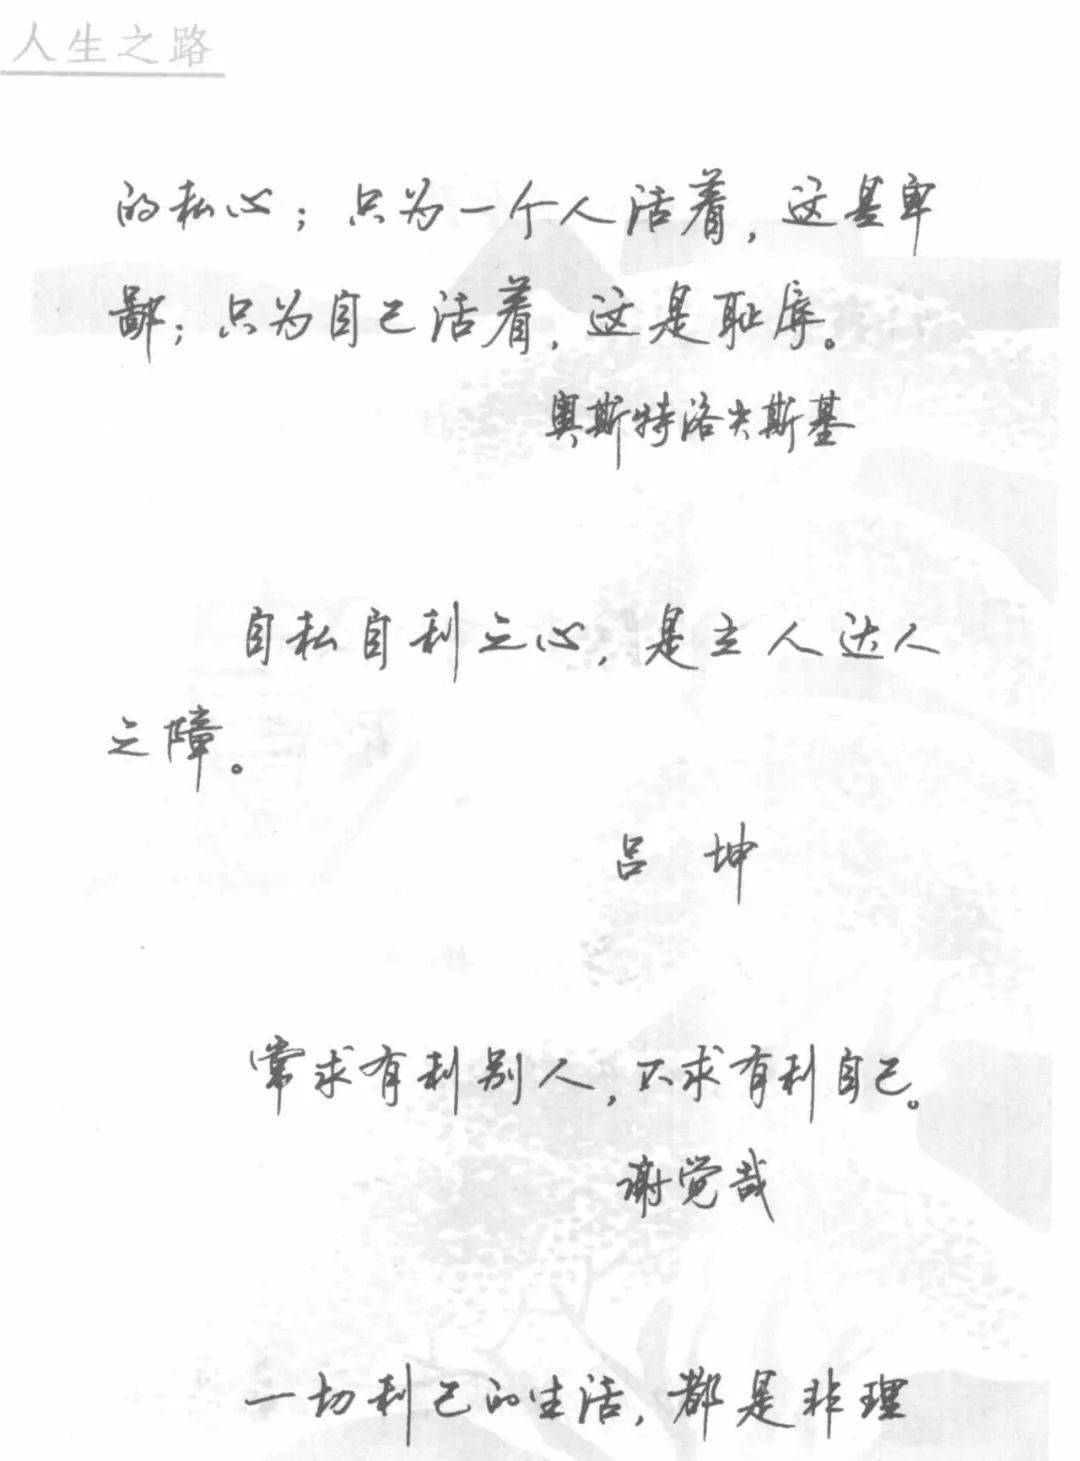 人生之路
的私心；只为一个人活着，这是卑
鄙；只为自己活着，这是耻辱。
奥斯特洛夫斯基
自私自利之心，是立人达人
之障。
吕 坤
常求有利别人，不求有利自己。
谢觉哉
一切利己的生活，都是非理